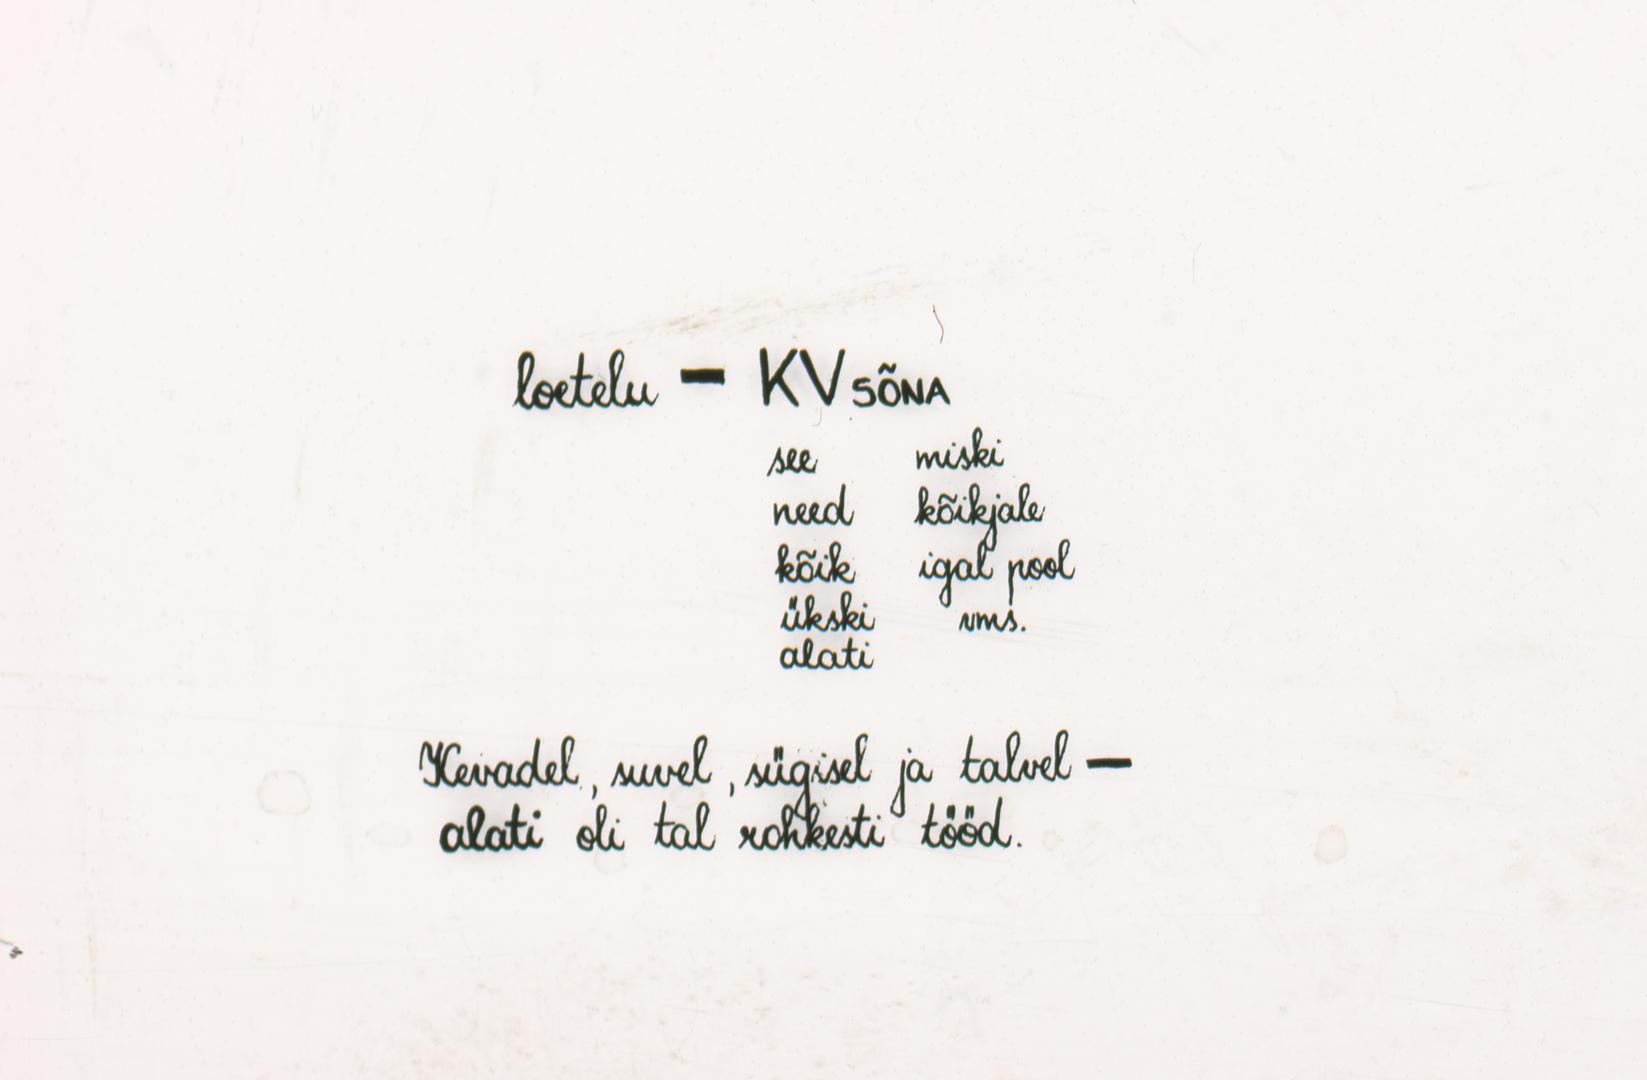 loetelu – KV SÕNA
see miski
need kõikjale
kõik igal pool
ükski vms.
alati
Kevadel, suvel, sügisel ja talvel –
alati oli tal rohkesti tööd.